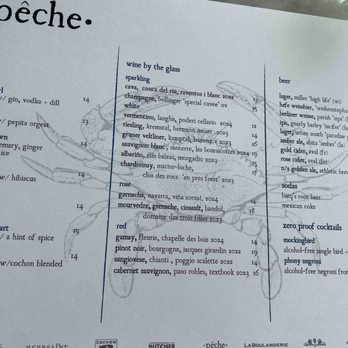 pêche.
w/ gin, vodka + dill 14
w/ pepita orgeat 13
w/ hibiscus 14
w/ a hint of spice 15
w/cochon blended 14
wine by the glass
sparkling
cava, conca del riu, raventos i blanc 2022 13
champagne, bollinger 'special cuvee' nv 35
white
vermentino, langhe, poderi cellario 2024
riesling, kremstal, hermann moser 2023
gruner veltliner, kamptal,
sauvignon blanc, sancerre, les bourricotiers 2024 19
albariño, rías baixas, morgadío 2023
chardonnay, macon-loche,
clos des rocs 'en pres foret' 2023
rosé
garnacha, navarra, viña zorzal, 2024
mourvedre, grenache, cinsault, bandol, 18
domaine des trois filles 2023
red
gamay, fleurie, chapelle des bois 2024 14
pinot noir, bourgogne, jacques girardin 2022 19
sangiovese, chianti, poggio scalette 2022 14
cabernet sauvignon, paso robles, textbook 2023 16
beer
lager, miller 'high life' (wi)
hefe weissbier, 'weihenstephan
berliner weisse, parish
ipa, gnarly barley
lager, urban south 'paradise
amber ale, abita 'amber' (la)
gold cider, aval (fr)
rosé cider, aval (fr)
n/a golden ale, athletic brew
sodas
barq's root beer
mexican coke
zero proof cocktails
mockingbird
alcohol-free jungle bird
phony negroni
alcohol-free negroni from
HERBSAINT
COCHON
BUTCHER
·pêche·
LA BOULANGERIE